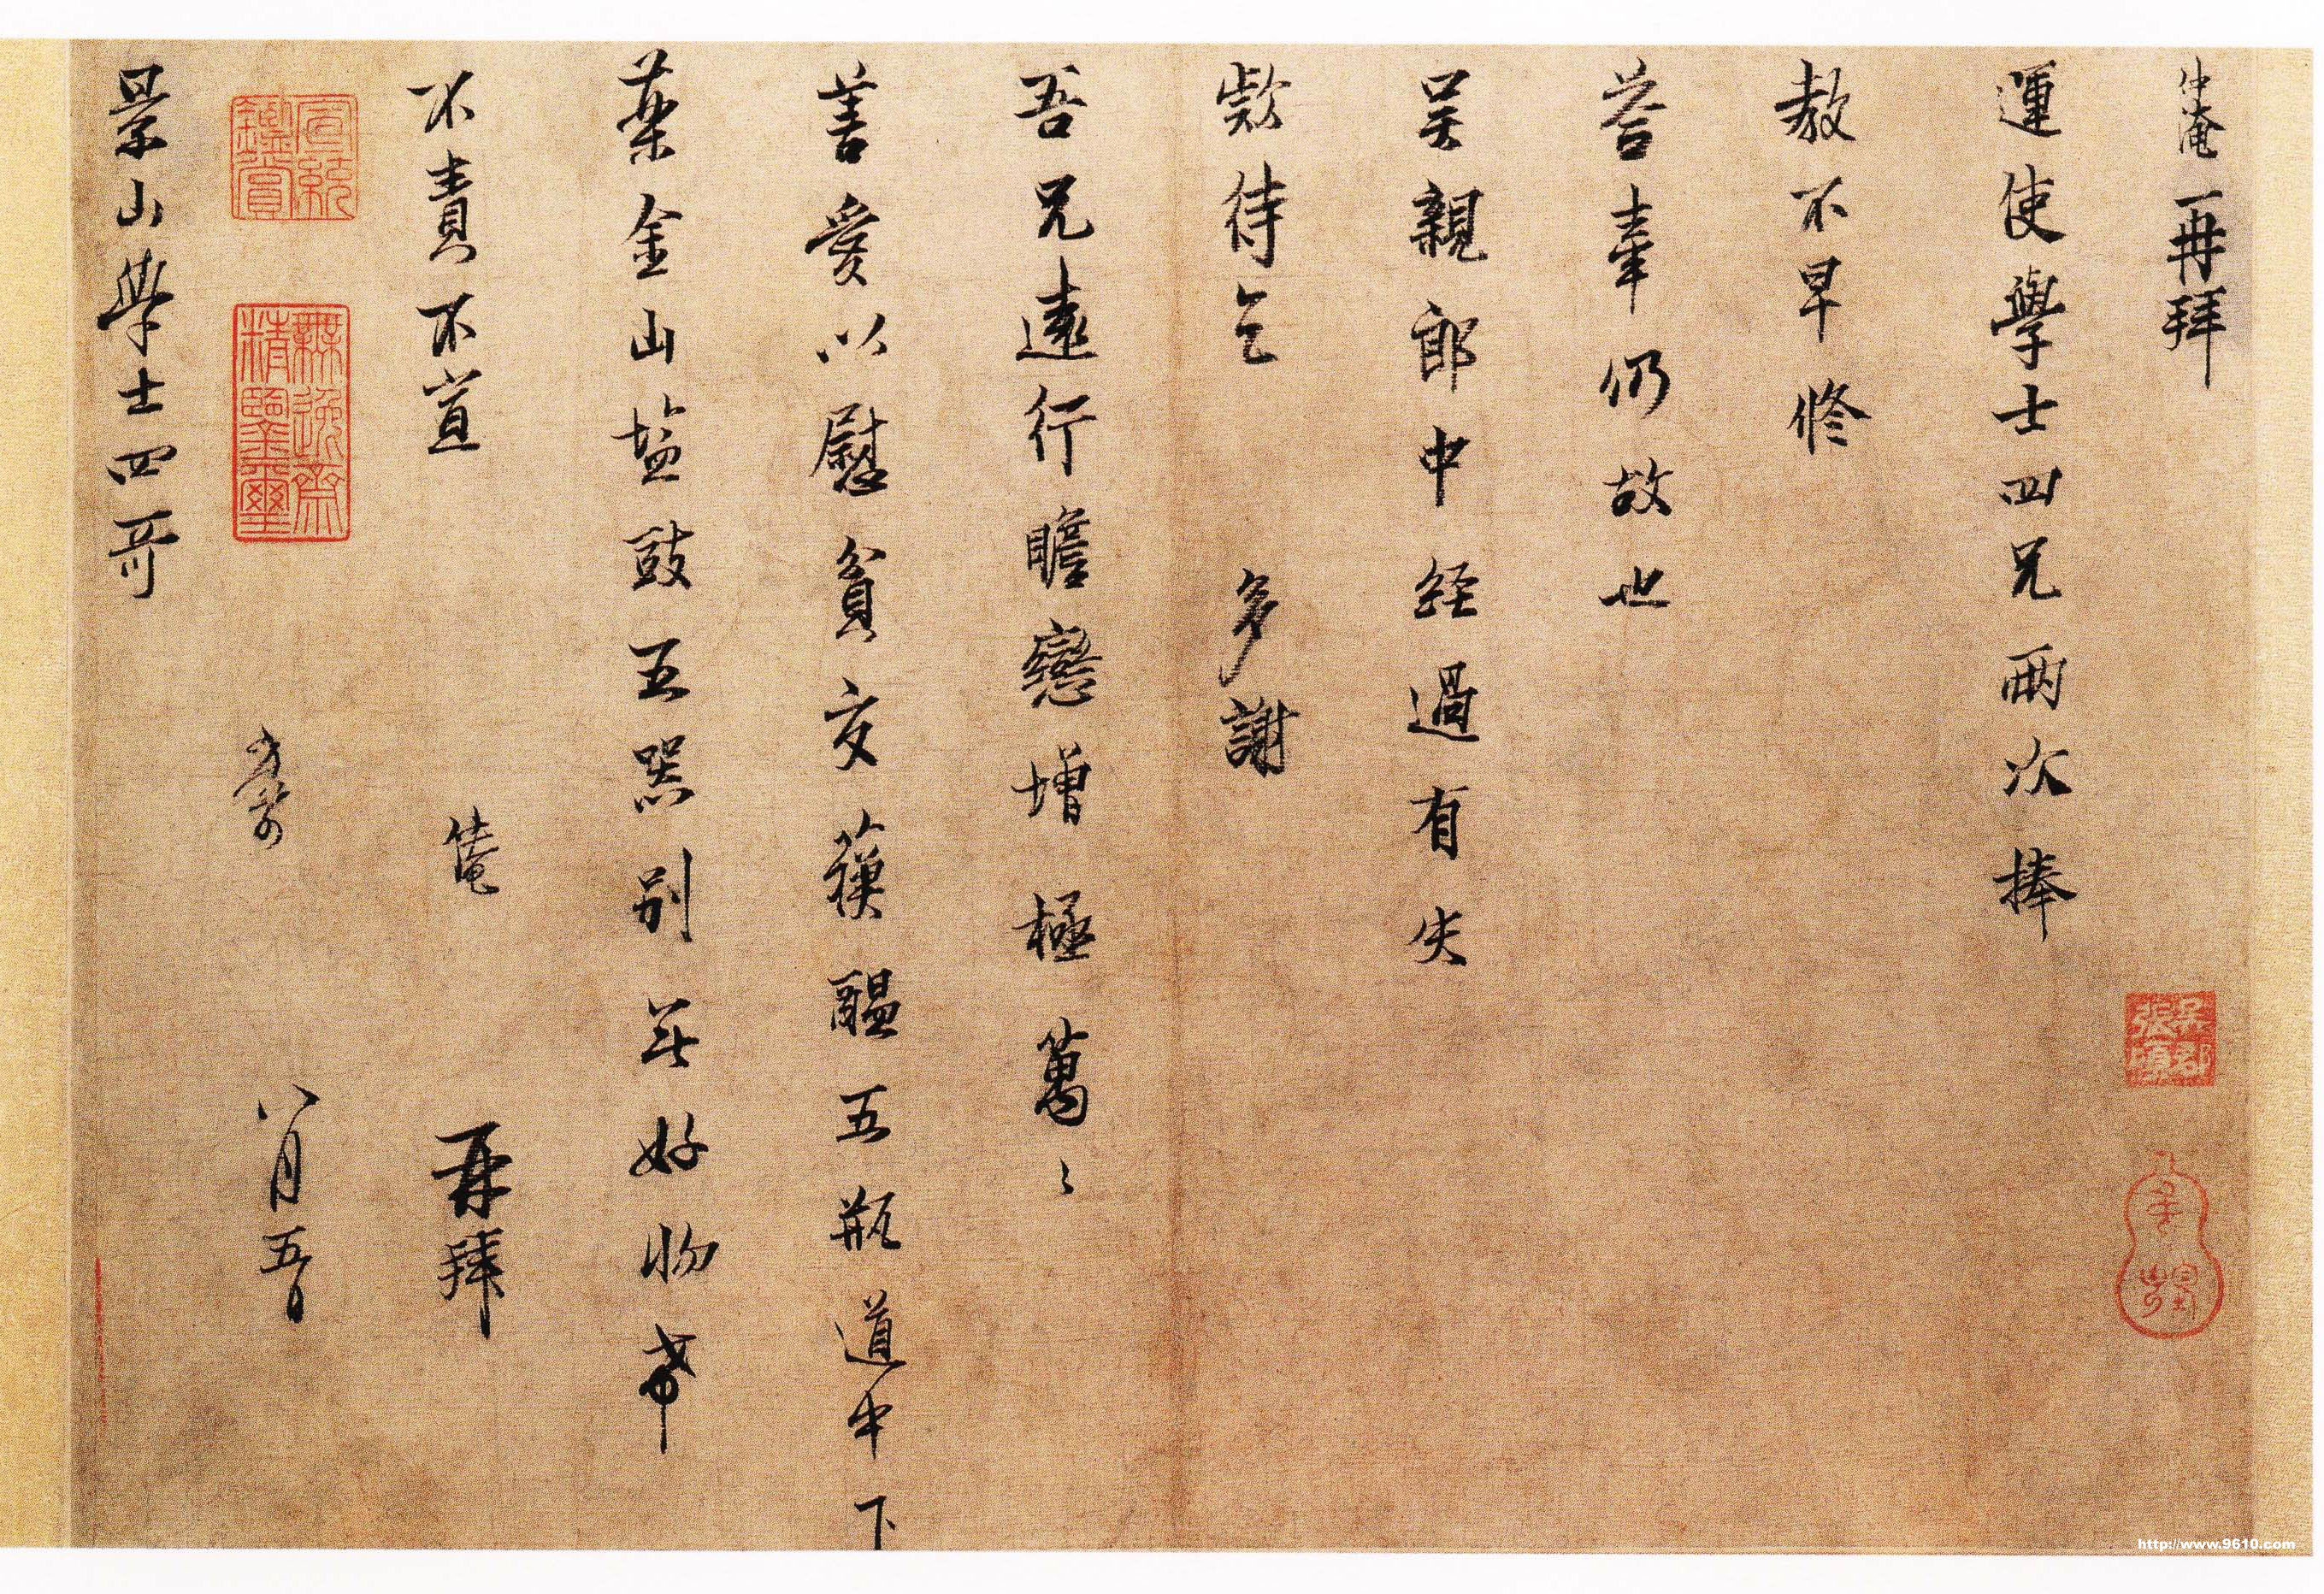 仲淹再拜
運使學士四兄兩次捧
教不早修
荅奉仍故也
吴親郎中経過有失
欵待乞
多謝
吾兄遠行瞻戀增極萬〻
善愛以慰貧交蘓醖五瓶道中下
藥金山塩豉五器別無好物希
不責不宣
仲淹
再拜
景山學士四哥
八月五日
宣統鑑賞
無逸齋精鑒璽
吳郡張䪴
http://www.9610.com